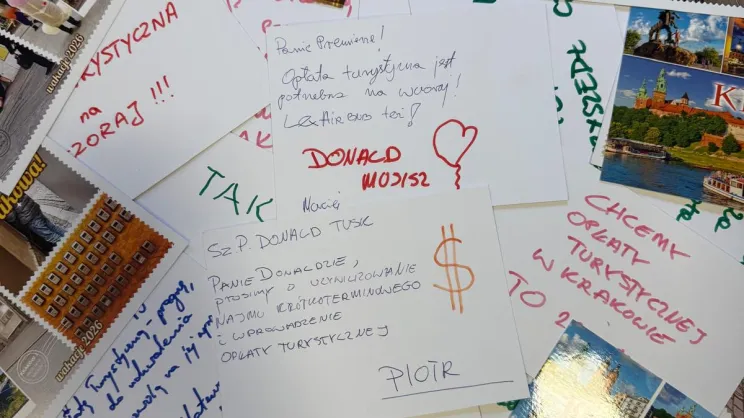 wakacje 2026
RYSTYCZNA
na
ZORAJ !!!
Panie Premierze!
Opłata turystyczna jest
potrzebna na wczoraj!
Lex AirBnB też!
DONALD
MUSISZ
Maciej
TAK
K
CHCEMY
OPŁATY
TURYSTYCZNEJ
W KRAKOWIE
TO
Sz P. DONALD TUSK
PANIE DONALDZIE,
PROSIMY O UCYWILIZOWANIE
NAJMU KRÓTKOTERMINOWEGO
I WPROWADZENIE
OPŁATY TURYSTYCZNEJ
$
PIOTR
akowa!
wakacje 2026
Turystyczną - proszę,
do uchwalenia